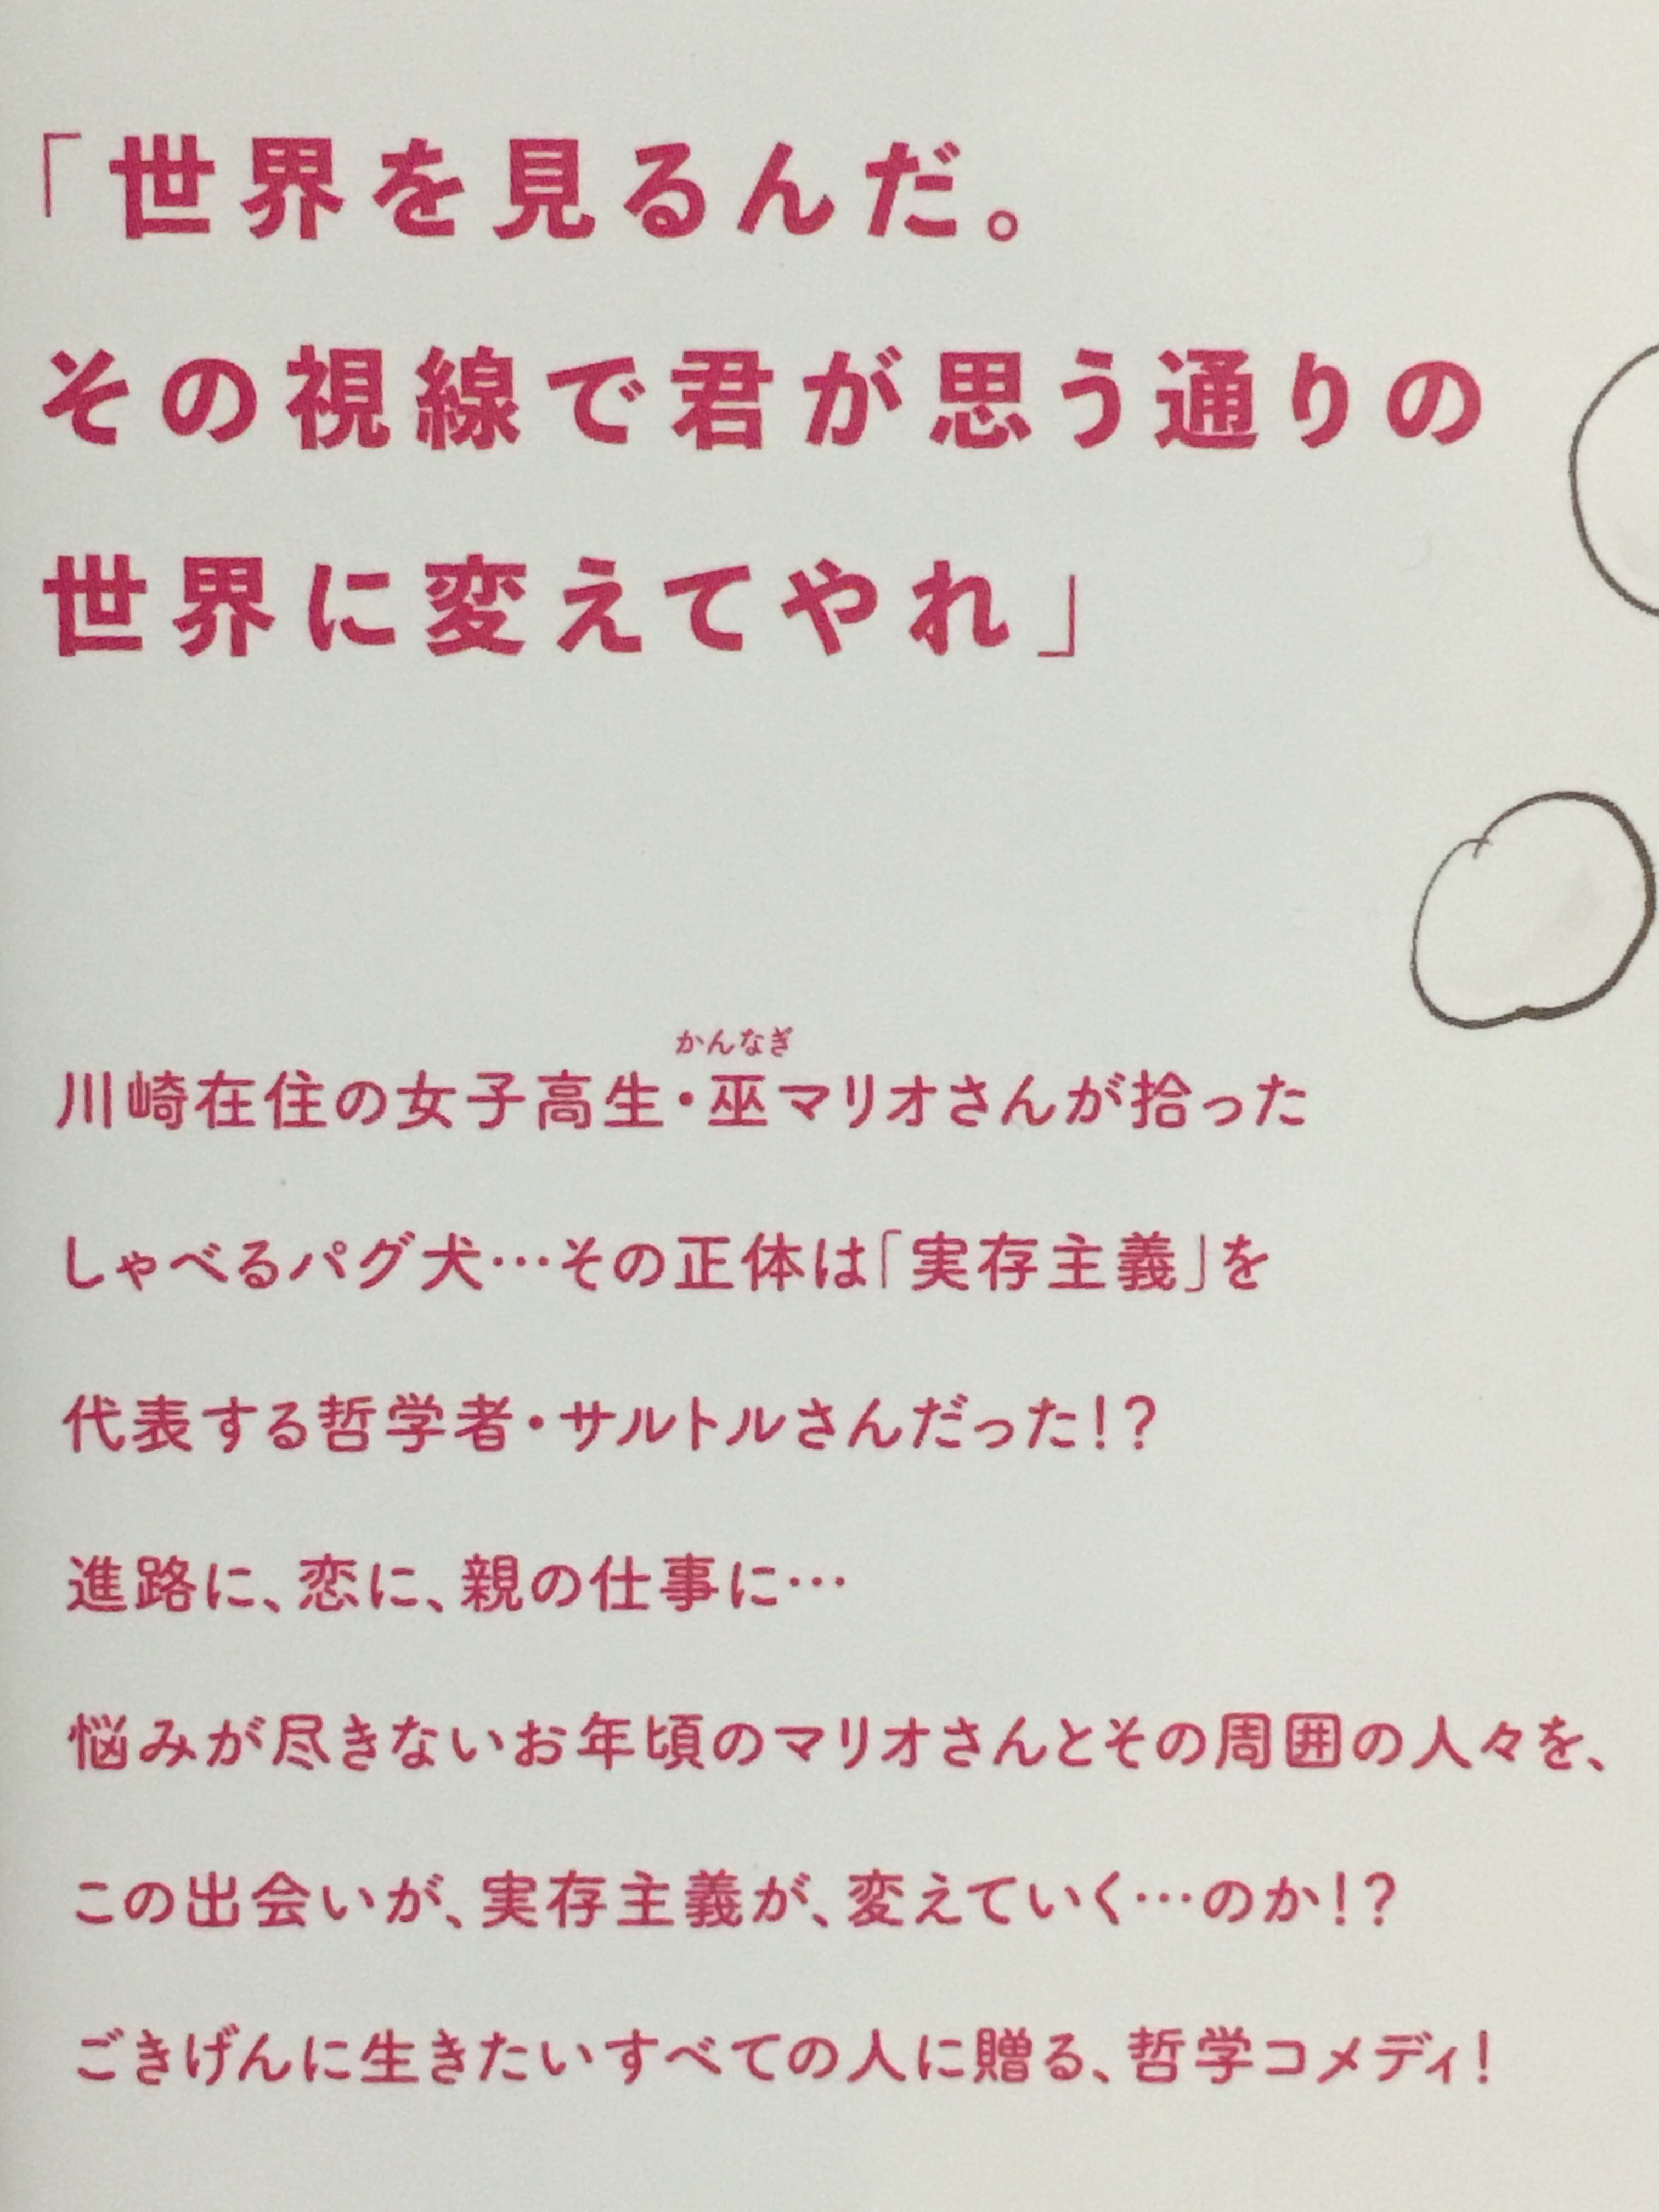 「世界を見るんだ。
その視線で君が思う通りの
世界に変えてやれ」
かんなぎ
川崎在住の女子高生・巫マリオさんが拾った
しゃべるパグ犬…その正体は「実存主義」を
代表する哲学者・サルトルさんだった！？
進路に、恋に、親の仕事に…
悩みが尽きないお年頃のマリオさんとその周囲の人々を、
この出会いが、実存主義が、変えていく…のか！？
ごきげんに生きたいすべての人に贈る、哲学コメディ！